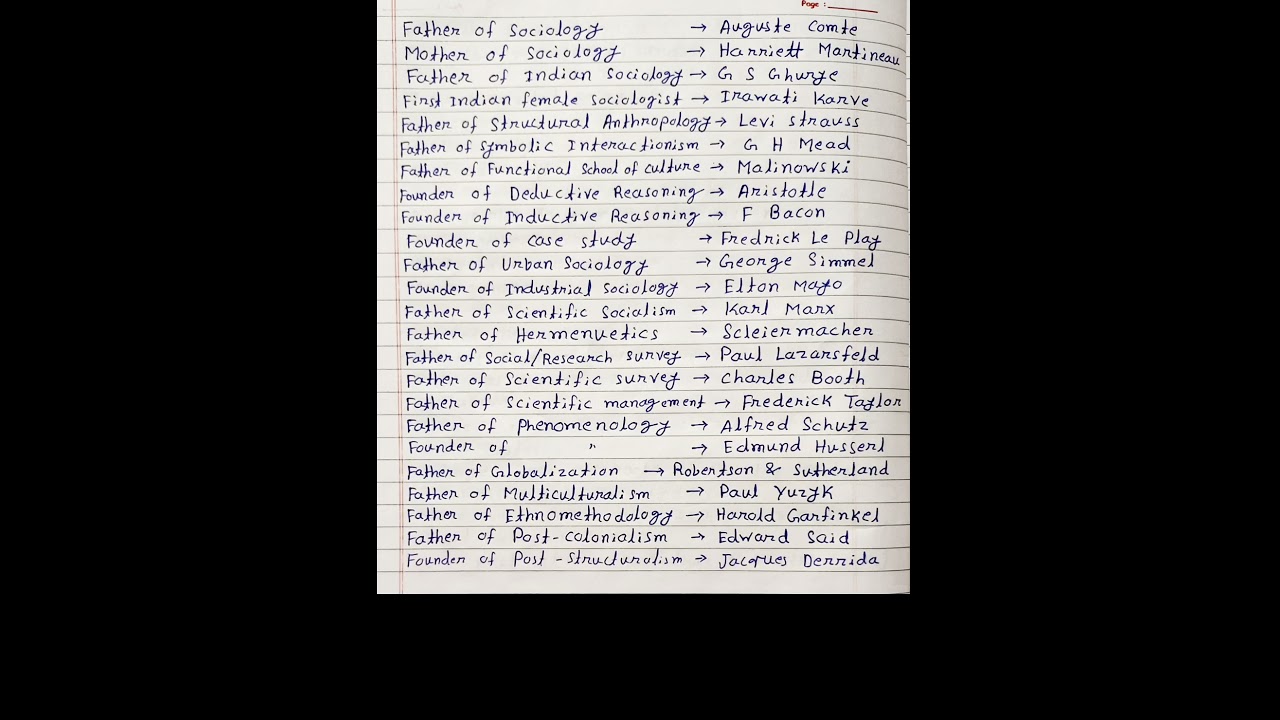 Page :
Father of Sociology → Auguste Comte
Mother of Sociology → Harriett Martineau
Father of Indian Sociology → G S Ghurye
First Indian female sociologist → Irawati Karve
Father of Structural Anthropology → Levi Strauss
Father of Symbolic Interactionism → G H Mead
Father of Functional School of culture → Malinowski
Founder of Deductive Reasoning → Aristotle
Founder of Inductive Reasoning → F Bacon
Founder of case study → Fredrick Le Play
Father of Urban Sociology → George Simmel
Founder of Industrial Sociology → Elton Mayo
Father of Scientific Socialism → Karl Marx
Father of Hermenuetics → Scleiermacher
Father of Social/Research survey → Paul Lazarsfeld
Father of Scientific survey → Charles Booth
Father of Scientific management → Frederick Taylor
Father of Phenomenology → Alfred Schutz
Founder of " → Edmund Husserl
Father of Globalization → Robertson & Sutherland
Father of Multiculturalism → Paul Yuzyk
Father of Ethnomethodology → Harold Garfinkel
Father of Post-colonialism → Edward Said
Founder of Post-Structuralism → Jacques Derrida